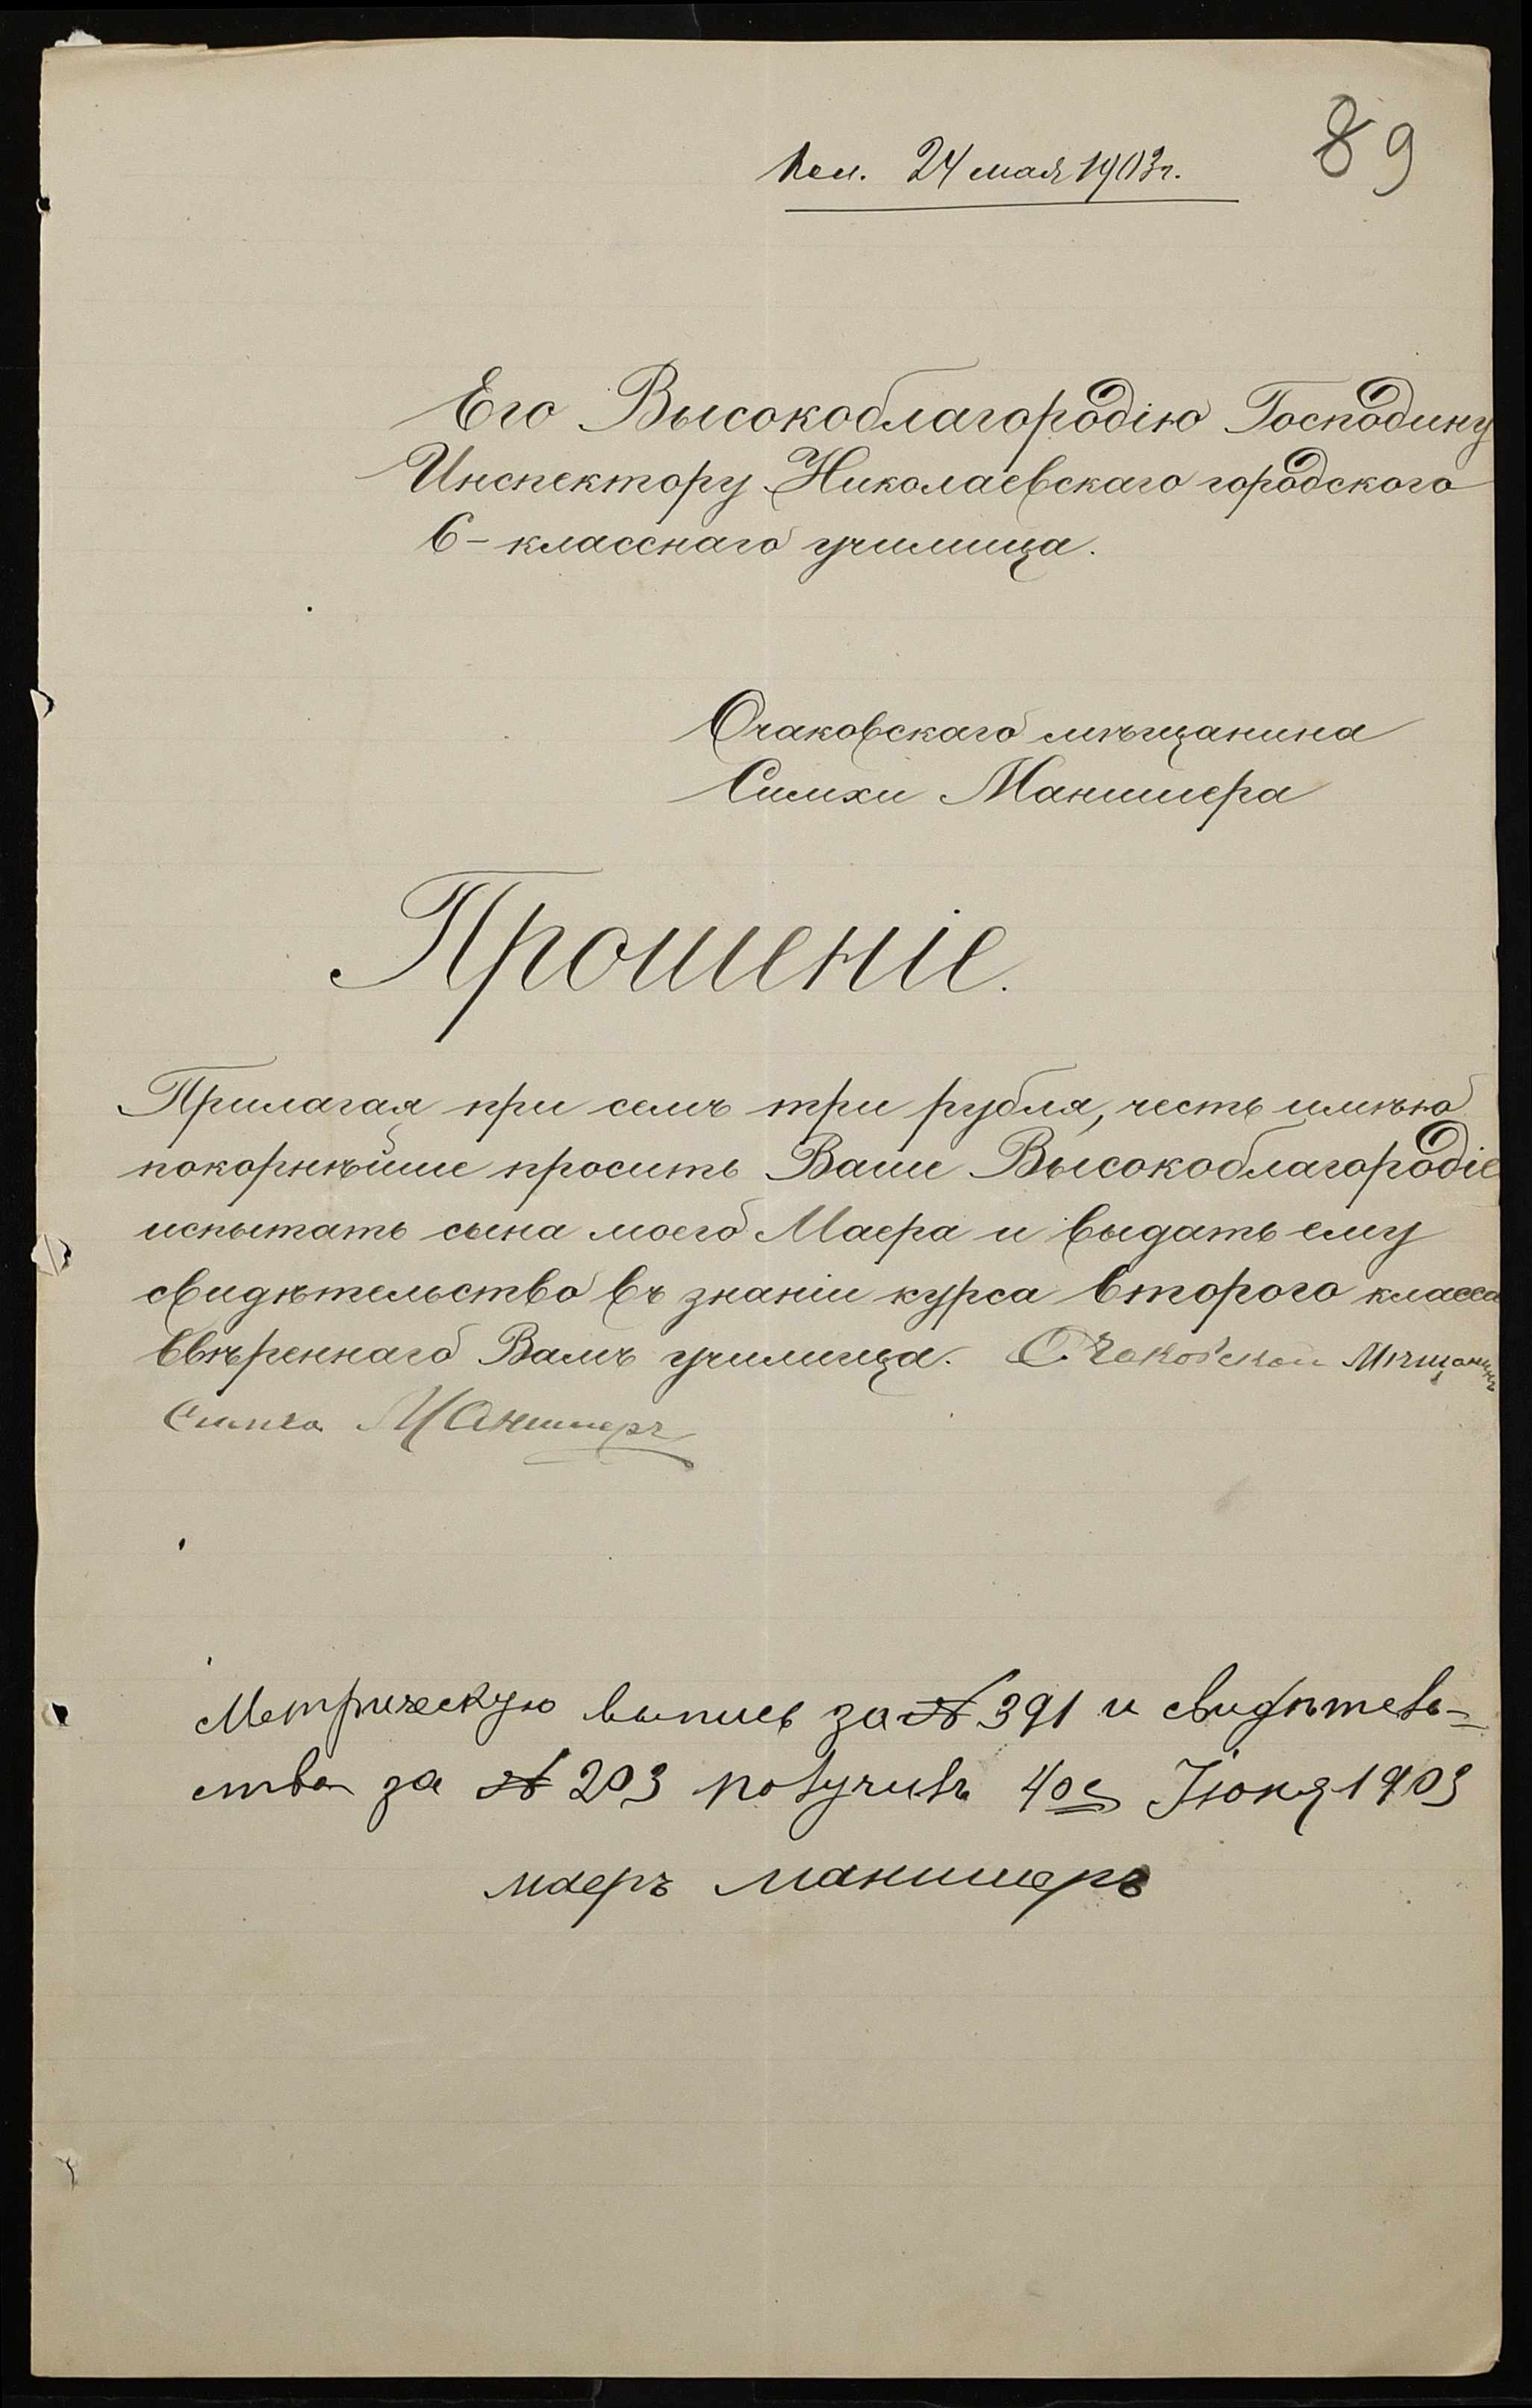 89
Пол. 24 мая 1903 г.
Его Высокоблагородію Господину
Инспектору Николаевскаго городского
6-класснаго училища.
Очаковскаго мѣщанина
Симхи Маншмера
Прошеніе.
Прилагая при семъ три рубля, честь имѣю
покорнѣйше просить Ваше Высокоблагородіе
испытать сына моего Маера и выдать ему
свидѣтельство въ знаніи курса второго класса
ввѣреннаго Вамъ училища. Очаковскои Мѣщанинъ
Симха Маншмеръ
Метрическую выпись за № 391 и свидѣтель-
ства за № 203 получивъ 4ое Іюня 1903
маеръ маншмеръ